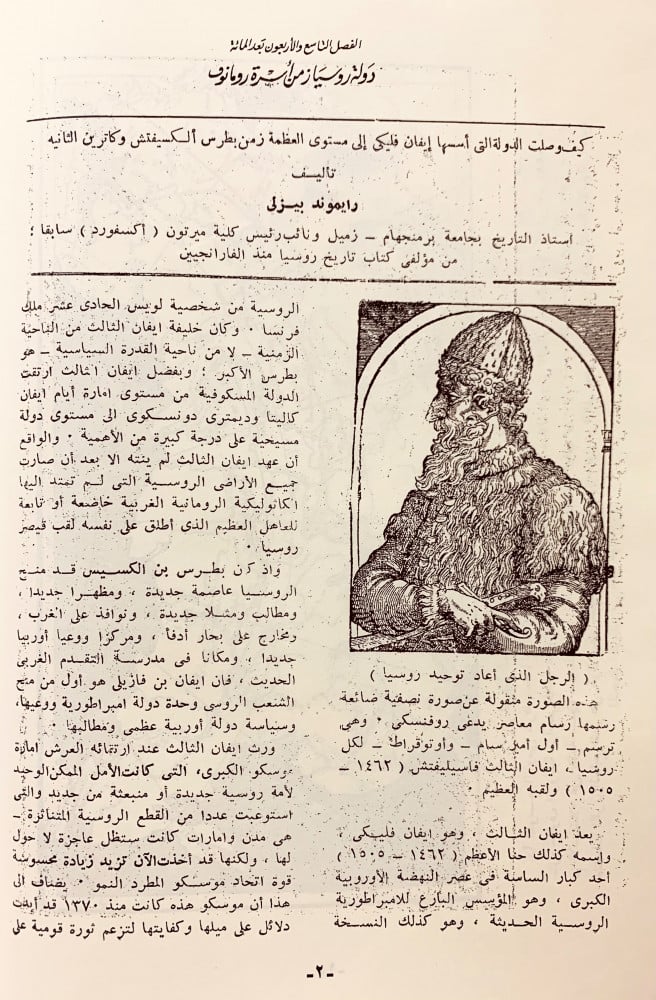 الفصل التاسع والأربعون بعد المائة
دولة روسيا زمن أسرة رومانوف
كيف وصلت الدولة التى أسسها إيفان فليكى إلى مستوى العظمة زمن بطرس ألكسيفتش وكاترين الثانيه
تأليف
رايموند بيزلى
استاذ التاريخ بجامعة برمنجهام – زميل ونائب رئيس كلية ميرتون ( أكسفورد ) سابقا ؛
من مؤلفى كتاب تاريخ روسيا منذ الفارانجيين
( الرجل الذى أعاد توحيد روسيا )
هذه الصورة منقولة عن صورة نصفية ضائعة
رسمها رسام معاصر يدعى روفنسكى ٠ وهى
ترسم – أول أمير سام – وأوتوقراط – لكل
روسيا ، ايفان الثالث فاسيليفتش ( ١٤٦٢ –
١٥٠٥ ) ولقبه العظيم ٠
يعد ايفان الثالث ، وهو ايفان فليكى ،
واسمه كذلك حنا الأعظم ( ١٤٦٢ – ١٥٠٥ )
أحد كبار الساسة فى عصر النهضة الأوروبية
الكبرى ، وهو المؤسس البارع للامبراطورية
الروسية الحديثة ، وهو كذلك النسخة
الروسية من شخصية لويس الحادى عشر ملك
فرنسا ٠ وكان خليفة ايفان الثالث من الناحية
الزمنية – لا من ناحية القدرة السياسية – هو
بطرس الأكبر ؛ وبفضل ايفان الثالث ارتقت
الدولة المسكوفية من مستوى امارة أيام ايفان
كاليتا وديمترى دونسكوى الى مستوى دولة
مسيحية على درجة كبيرة من الأهمية ٠ والواقع
أن عهد ايفان الثالث لم ينته الا بعد أن صارت
جميع الأراضى الروسية التى لم تمتد اليها
الكاثوليكية الرومانية الغربية خاضعة أو تابعة
للعاهل العظيم الذى أطلق على نفسه لقب قيصر
روسيا ٠
واذ كان بطرس بن الكسيس قد منح
الروسيا عاصمة جديدة ، ومظهرا جديدا ،
ومطالب ومثلا جديدة ، ونوافذ على الغرب ،
ومخارج على بحار أدفأ ، ومركزا ووعيا أوربيا
جديدا ، ومكانا فى مدرسة التقدم الغربى
الحديث ، فان ايفان بن فازيلى هو أول من منح
الشعب الروسى وحدة دولة امبراطورية ووعيها،
وسياسة دولة أوربية عظمى ومطالبها ٠
ورث ايفان الثالث عند ارتقائه العرش امارة
موسكو الكبرى، التى كانت الأمل الممكن الوحيد
لأمة روسية جديدة أو منبعثة من جديد والتى
استوعبت عددا من القطع الروسية المتناثرة –
هى مدن وامارات كانت ستظل عاجزة لا حول
لها ، ولكنها قد أخذت الآن تزيد زيادة محسوسة
قوة اتحاد موسكو المطرد النمو ٠ يضاف الى
هذا أن موسكو هذه كانت منذ ١٣٧٠ قد أبدت
دلائل على ميلها وكفايتها لتزعم ثورة قومية على
-٢-